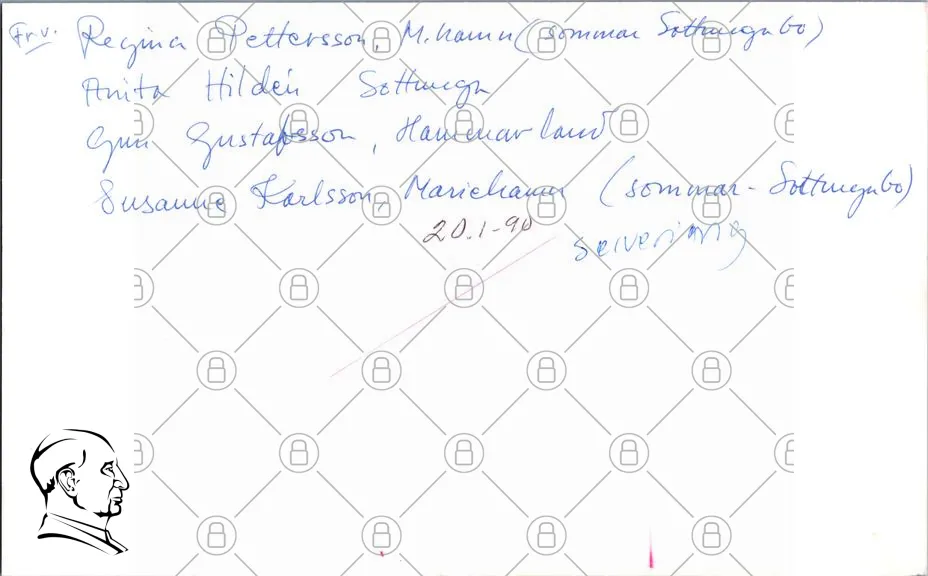 Fr.v. Regina Pettersson, M.hamn (sommar Sottungabo)
Anita Hildén Sottunga
Gun Gustafsson, Hammarland
Susanne Karlsson, Mariehamn (sommar-Sottungabo)
20.1-90
servering